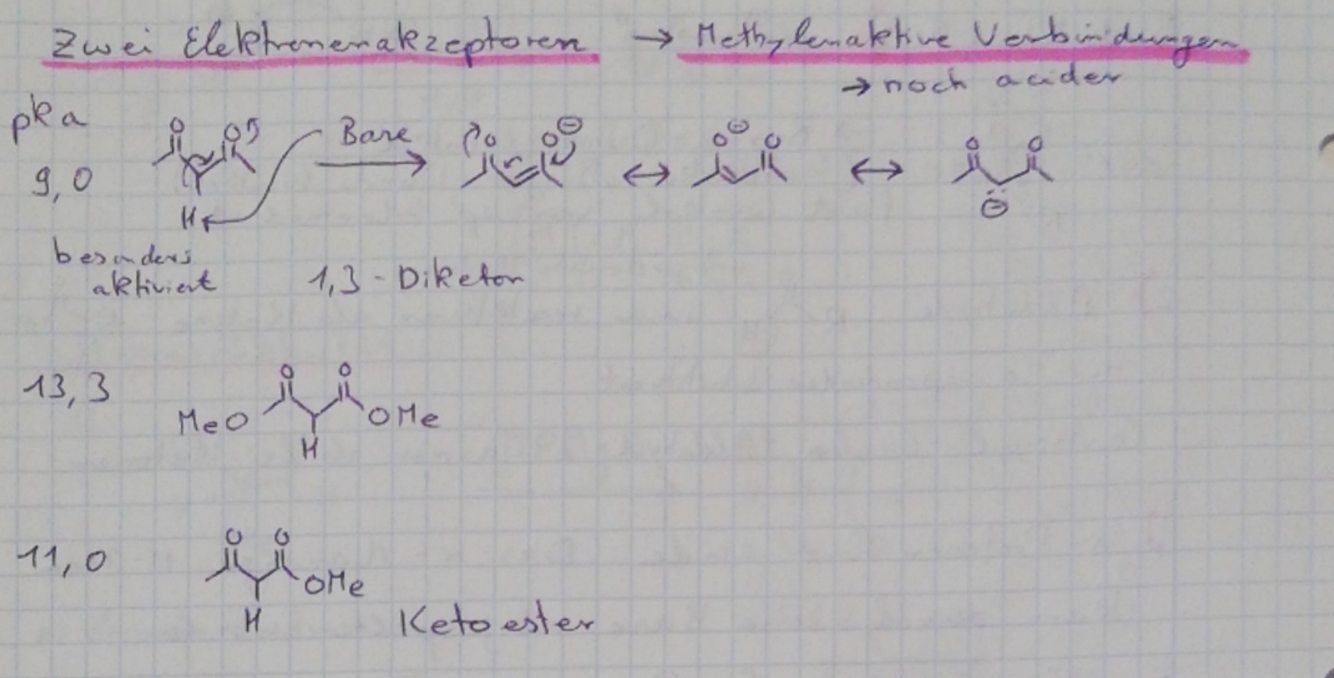 Zwei Elektronenakzeptoren → Methylenaktive Verbindungen
→ noch acider
pka
9,0
O O
H
Base
O O ⊖
↔
O ⊖ O
↔
O O
⊖
besonders
aktiviert
1,3 - Diketon
13,3
O O
MeO OMe
H
11,0
O O
OMe
H
Ketoester